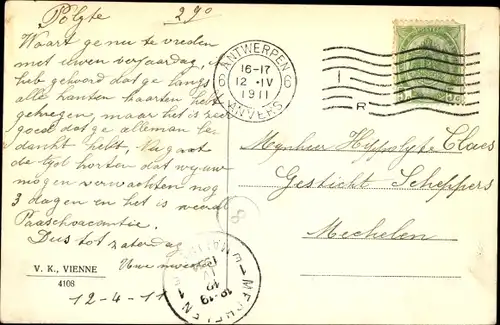 Polyte 29º
Waart ge nu te vreden
met uwen verjaardag, ik
heb gehoord dat ge langs
alle kanten kaarten hebt
gekregen, maar het is zeer
goed dat ge alleman be-
dankt hebt. Nu gaat
de tijd korten dat wij uw
mogen verwachten nog
3 dagen en het is
Paaschvacantie.
Dus tot zaterdag
Uwe
V. K., VIENNE
4108
12-4-11
6 ANTWERPEN 6
16-17
12-IV
1911
ANVERS
I
R
Mijnheer Hyppolyte Claes
Gesticht Scheppers
Mechelen
8
1 MECHELEN 1
18-19